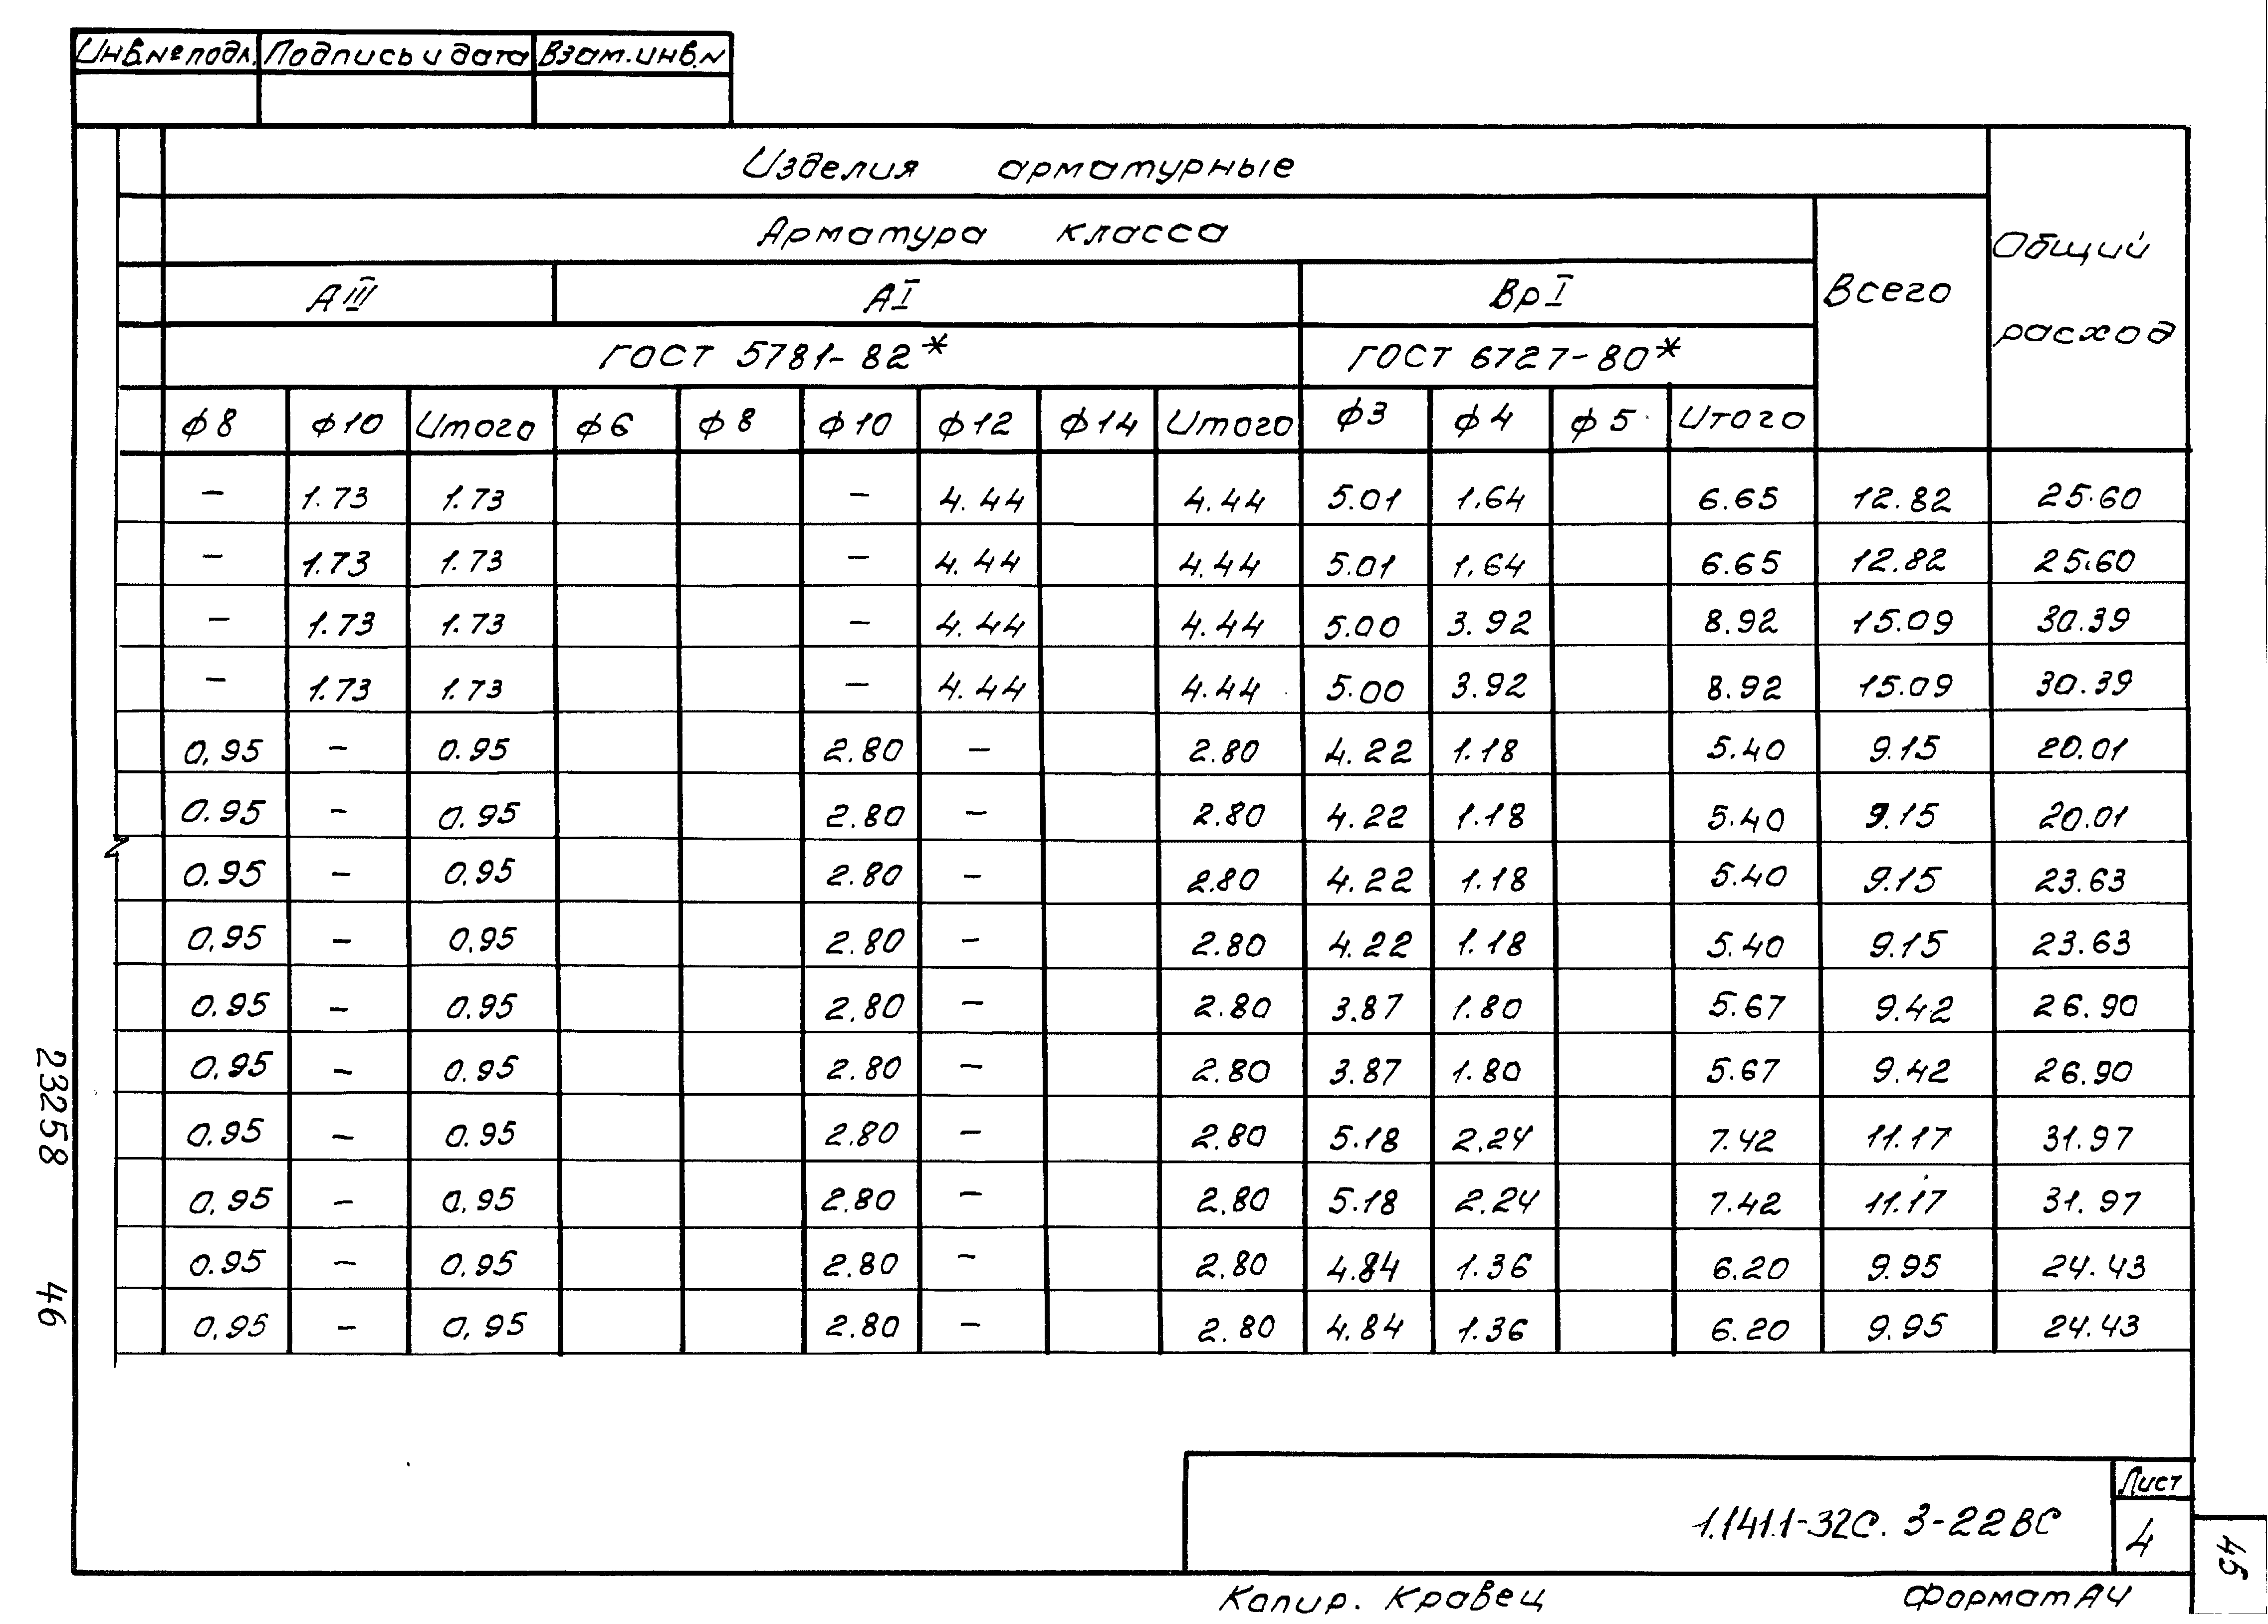 Инв.№ подл. Подпись и дата Взам.инв.N
Изделия арматурные
Арматура класса
Общий расход
АIII АI ВрI Всего
ГОСТ 5781-82* ГОСТ 6727-80*
ф8 ф10 Итого ф6 ф8 ф10 ф12 ф14 Итого ф3 ф4 ф5 Итого
– 1.73 1.73 – 4.44 4.44 5.01 1.64 6.65 12.82 25.60
– 1.73 1.73 – 4.44 4.44 5.01 1.64 6.65 12.82 25.60
– 1.73 1.73 – 4.44 4.44 5.00 3.92 8.92 15.09 30.39
– 1.73 1.73 – 4.44 4.44 5.00 3.92 8.92 15.09 30.39
0,95 – 0.95 2.80 – 2.80 4.22 1.18 5.40 9.15 20.01
0.95 – 0.95 2.80 – 2.80 4.22 1.18 5.40 9.15 20.01
0.95 – 0.95 2.80 – 2.80 4.22 1.18 5.40 9.15 23.63
0,95 – 0,95 2.80 – 2.80 4.22 1.18 5.40 9.15 23.63
0.95 – 0.95 2.80 – 2.80 3.87 1.80 5.67 9.42 26.90
0.95 – 0.95 2.80 – 2.80 3.87 1.80 5.67 9.42 26.90
0.95 – 0.95 2.80 – 2.80 5.18 2.24 7.42 11.17 31.97
0,95 – 0,95 2.80 – 2.80 5.18 2.24 7.42 11.17 31.97
0.95 – 0.95 2.80 – 2.80 4.84 1.36 6.20 9.95 24.43
0.95 – 0,95 2.80 – 2.80 4.84 1.36 6.20 9.95 24.43
23258 46
1.141.1-32С. 3-22ВС
Лист
4
45
Копир. Кравец Формат А4